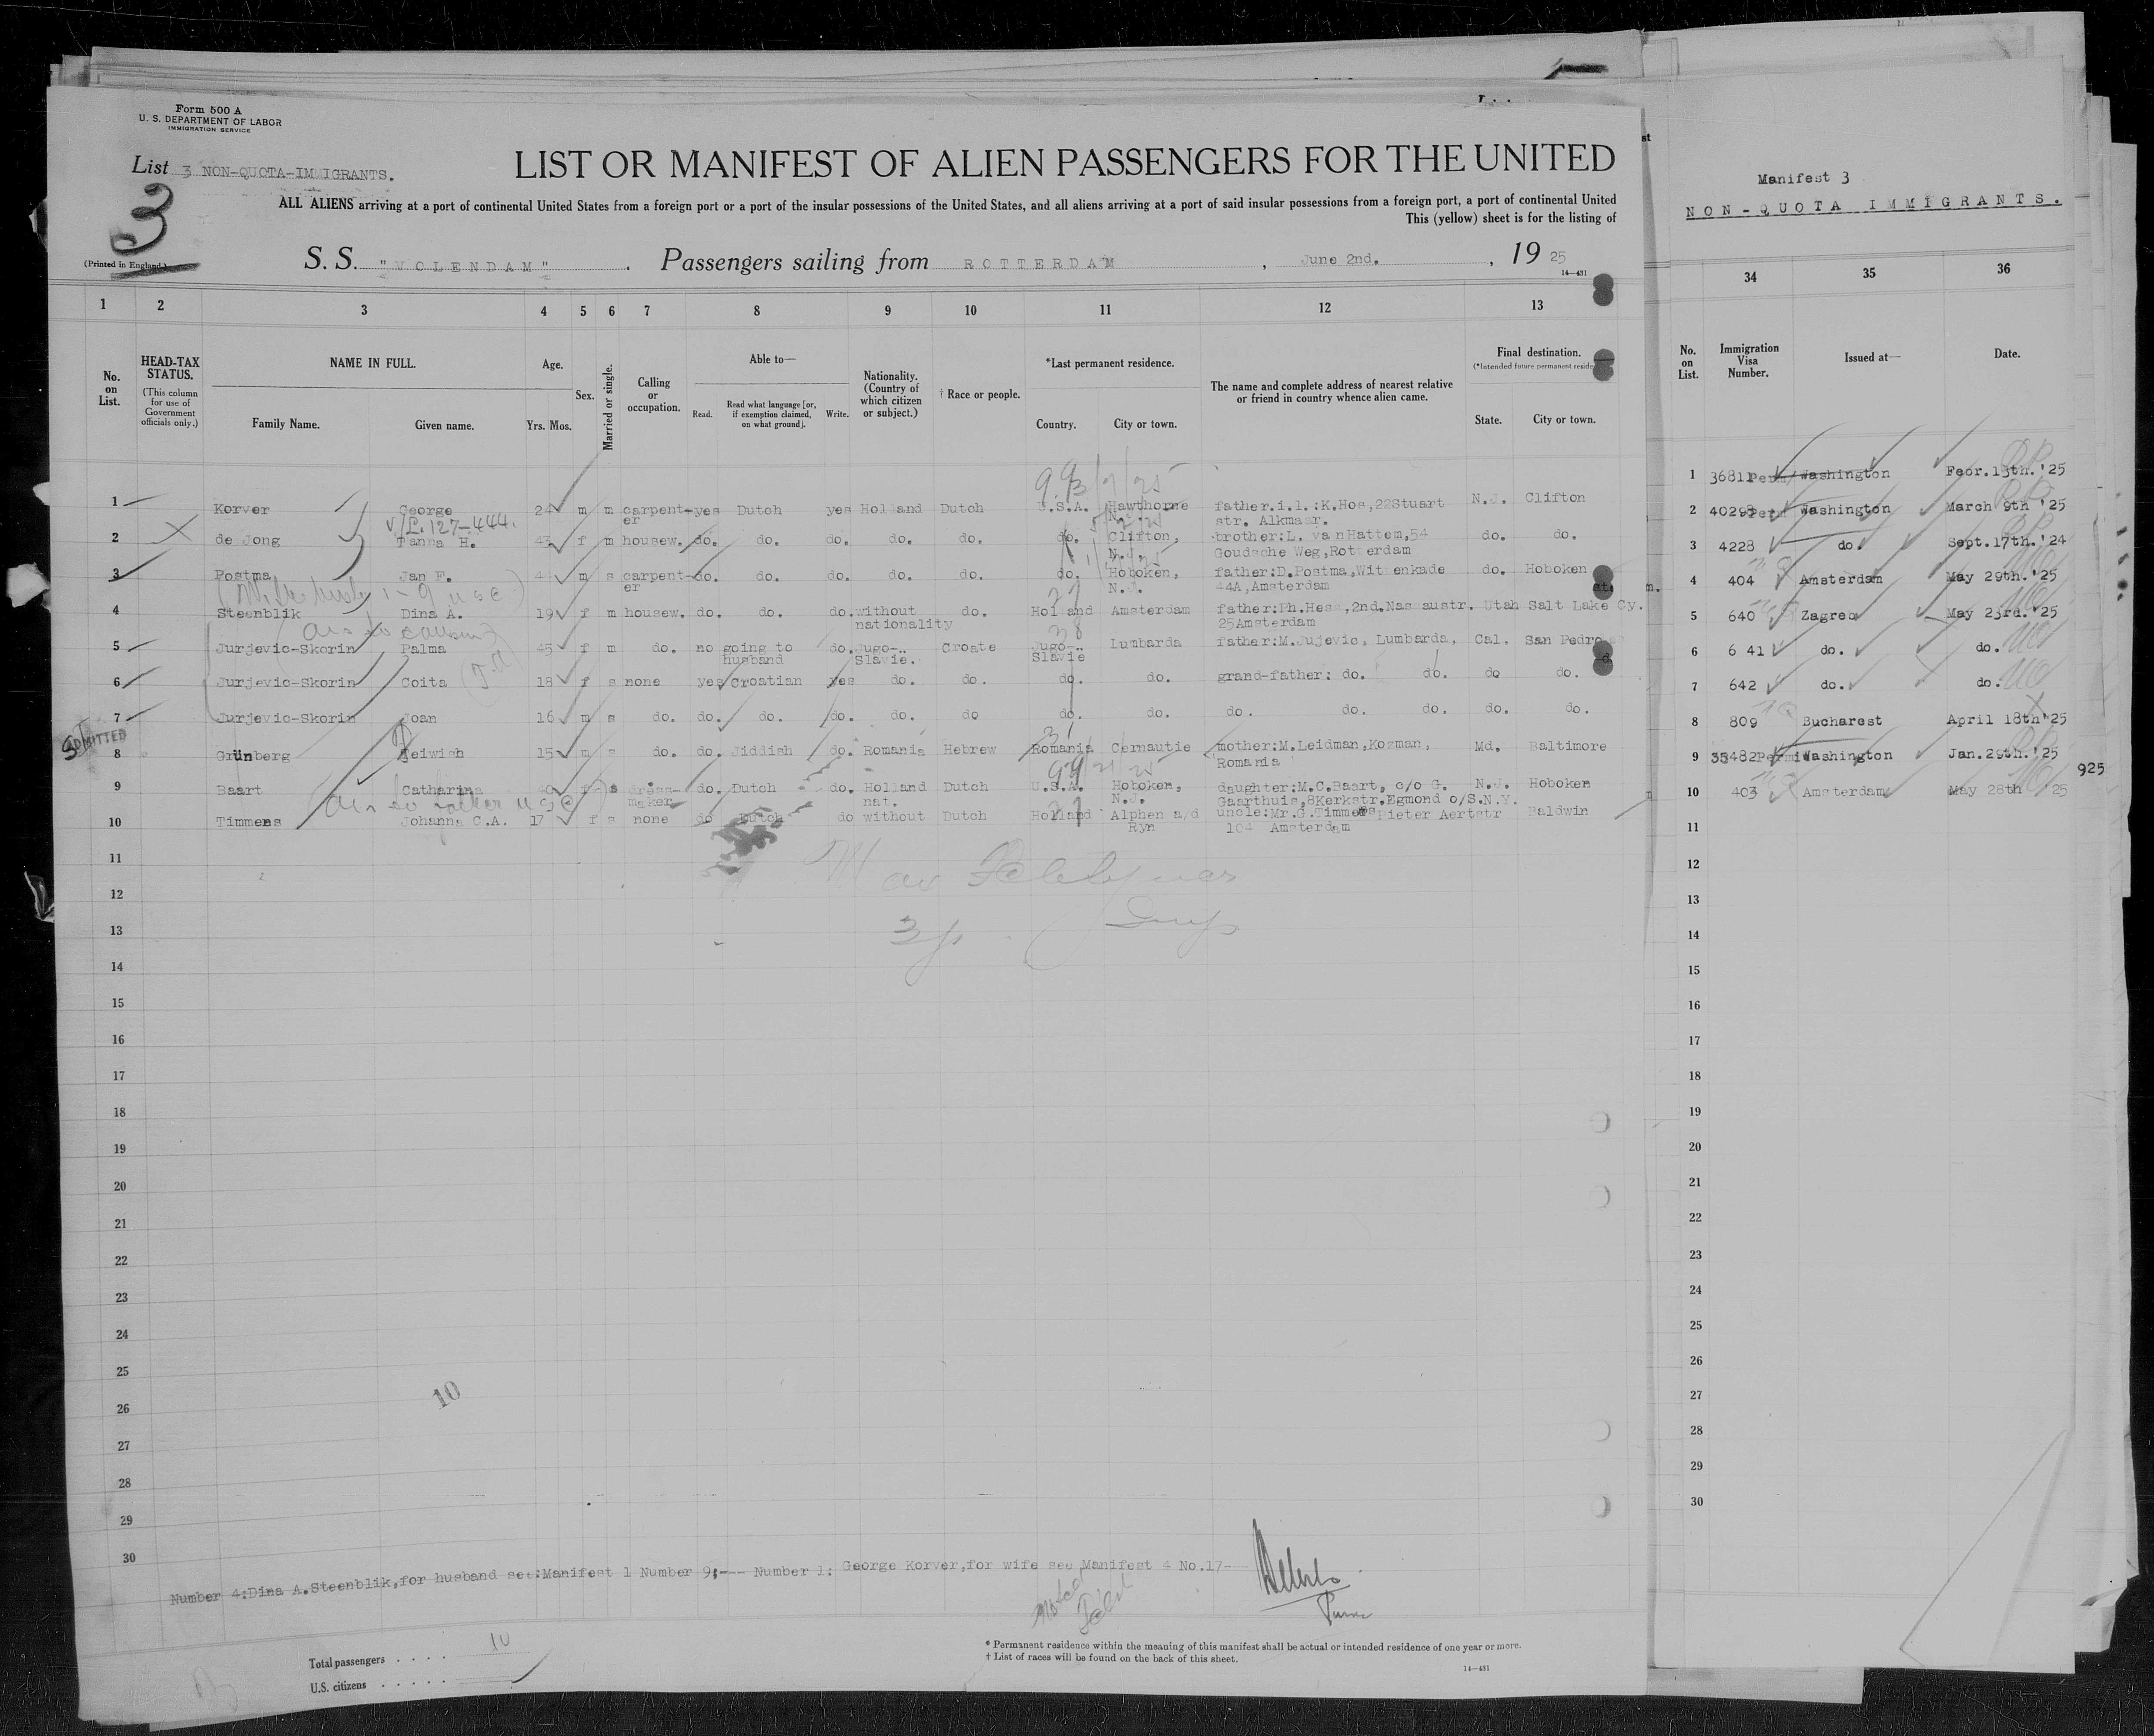 Form 500 A
U. S. DEPARTMENT OF LABOR
IMMIGRATION SERVICE
List 3 NON-QUOTA-IMMIGRANTS.
3
(Printed in England.)
LIST OR MANIFEST OF ALIEN PASSENGERS FOR THE UNITED
ALL ALIENS arriving at a port of continental United States from a foreign port or a port of the insular possessions of the United States, and all aliens arriving at a port of said insular possessions from a foreign port, a port of continental United
This (yellow) sheet is for the listing of
S. S. "VOLENDAM" . Passengers sailing from ROTTERDAM , June 2nd. , 19 25
14—431
1 2 3 4 5 6 7 8 9 10 11 12 13
No. on List.
HEAD-TAX STATUS.
(This column for use of Government officials only.)
NAME IN FULL.
Family Name. Given name.
Age.
Yrs. Mos.
Sex.
Married or single.
Calling or occupation.
Able to—
Read. Read what language [or, if exemption claimed, on what ground]. Write.
Nationality. (Country of which citizen or subject.)
† Race or people.
*Last permanent residence.
Country. City or town.
The name and complete address of nearest relative or friend in country whence alien came.
Final destination.
(*Intended future permanent reside
State. City or town.
1 Korver George 24 m m carpent-er yes Dutch yes Holland Dutch U.S.A. Hawthorne N.J. father.i.l.:K.Hos,22Stuart str. Alkmaar. N.J. Clifton
V/L.127-444.
2 de Jong Tanna H. 43 f m housew. do. do. do. do. do. do. Clifton, N.J. brother:L. vanHattem,54 Goudsche Weg,Rotterdam do. do.
3 Postma Jan F. 44 m s carpent-er do. do. do. do. do. do. Hoboken, N.J. father:D.Postma,Wittenkade 44A,Amsterdam do. Hoboken
4 Steenblik Dina A. 19 f m housew. do. do. do. without nationality do. Holland Amsterdam father:Ph.Hess,2nd.Nassaustr. 25Amsterdam Utah Salt Lake Cy.
5 Jurjevic-Skorin Palma 45 f m do. no going to husband do. Jugo-Slavie. Croate Jugo-Slavie Lumbarda father:M.Jujevic, Lumbarda, Cal. San Pedro
6 Jurjevic-Skorin Coita 18 f s none yes Croatian yes do. do. do. do. grand-father: do. do. do do.
7 Jurjevic-Skorin Joan 16 m s do. do. do. do. do. do do. do. do. do. do. do. do.
ADMITTED
8 Grünberg Leiwish 15 m s do. do. Jiddish do. Romania Hebrew Romania Cernautie mother:M.Leidman,Kozman, Romania Md. Baltimore
9 Baart Catharina f s dress-maker do. Dutch do. Holland nat. Dutch U.S.A. Hoboken, N.J. daughter:M.C.Baart, c/o G. Gaarthuis,8Kerkstr.Egmond o/S. N.J. Hoboken
10 Timmens Johanna C.A. 17 f s none do Dutch do without Dutch Holland Alphen a/d Ryn uncle:Mr.G.Timmens Pieter Aertstr 104 Amsterdam N.Y. Baldwin
11
12
13
14
15
16
17
18
19
20
21
22
23
24
25
26
27
28
29
30
10
Number 4:Dina A.Steenblik,for husband see:Manifest 1 Number 9;--- Number 1: George Korver,for wife see Manifest 4 No.17-
Total passengers . . . . 10
U.S. citizens . . . . .
* Permanent residence within the meaning of this manifest shall be actual or intended residence of one year or more.
† List of races will be found on the back of this sheet.
14—431
Manifest 3
NON-QUOTA IMMIGRANTS.
34 35 36
No. on List. Immigration Visa Number. Issued at— Date.
1 36811 Perm Washington Febr.13th.'25
2 40298 Perm Washington March 9th '25
3 4228 do. Sept.17th.'24
4 404 Amsterdam May 29th.'25
5 640 Zagreb May 23rd.'25
6 641 do. do.
7 642 do. do.
8 809 Bucharest April 18th'25
9 35482 Permit Washington Jan.29th.'25
10 403 Amsterdam May 28th '25
11
12
13
14
15
16
17
18
19
20
21
22
23
24
25
26
27
28
29
30
925